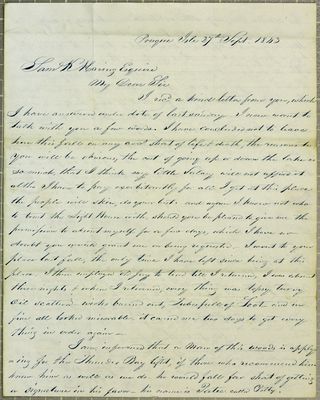 Presque Isle 27th Sept. 1843
Saml K Haring Esquire
My Dear Sir
I recd a kind letter from you, which
I have answered under date of last evening. I now want to
talk with you a few words. I have concluded not to leave
here this fall on any acct short of life & death, the reasons to
you will be obvious, the cost of going up or down the lake is
so much, that I think my little Salary will not afford it
altho I have to pay exorbitantly for all I get at this place
the people will skin, do your best. and again I know not who
to trust the Light House with should you be pleased to give me the
permission to absent myself for a few days, which I have no
doubt you would grant me on being requested. I went to your
place last fall, the only time I have left since being at this
place. I then employed a boy to tend till I returned, I was absent
three nights & when I returned, every thing was topsy turvy
Oil scattered wicks burned out, Tubes full of Soot and in
fine all looked miserable. it cased me two days to get every
thing in order again —
I am informed that a Man of this woods is apply
-ing for the Thunder Bay light, if those who recommend him
knew him as well as we do he would fall far short of getting
a signature in his favor — his name is Peter called Pity